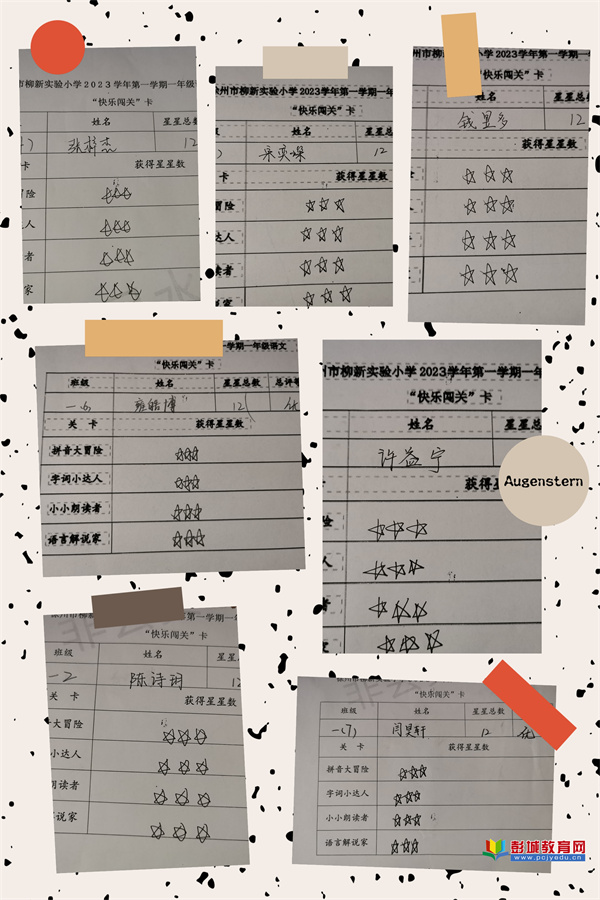 市柳新实验小学2023学年第一学期一年级
“快乐闯关”卡
姓名 星星总数
12
卡 获得星星数
人
者
家
州市柳新实验小学2023学年第一学期一
“快乐闯关”卡
姓名 星星总
12
卡 获得星星数
冒险
达人
读者
说家
小学2023学年第一学
“快乐闯关”卡
姓名 星星总
钱里多 12
获得星星数
学期一年级语文
“快乐闯关”卡
班级 姓名 星星总数 总评等
12 优
关 卡 获得星星数
拼音大冒险
字词小达人
小小朗读者
语言解说家
州市柳新实验小学2023学年第一学期一年
“快乐闯关”卡
姓名 星星总
许益宁
获得星
险
人
者
家
Augenstern
徐州市柳新实验 第一学期一年
“快乐闯关”卡
班级 姓名 星星
一2 陈诗玥 1
关 卡 获得星星数
大冒险
小达人
朗读者
解说家
“快乐闯关”卡
班级 姓名 星星总数
一(7) 闫昊轩 12 优
关 卡 获得星星数
拼音大冒险
字词小达人
小小朗读者
语言解说家
彭城教育网
www.pcjyedu.cn